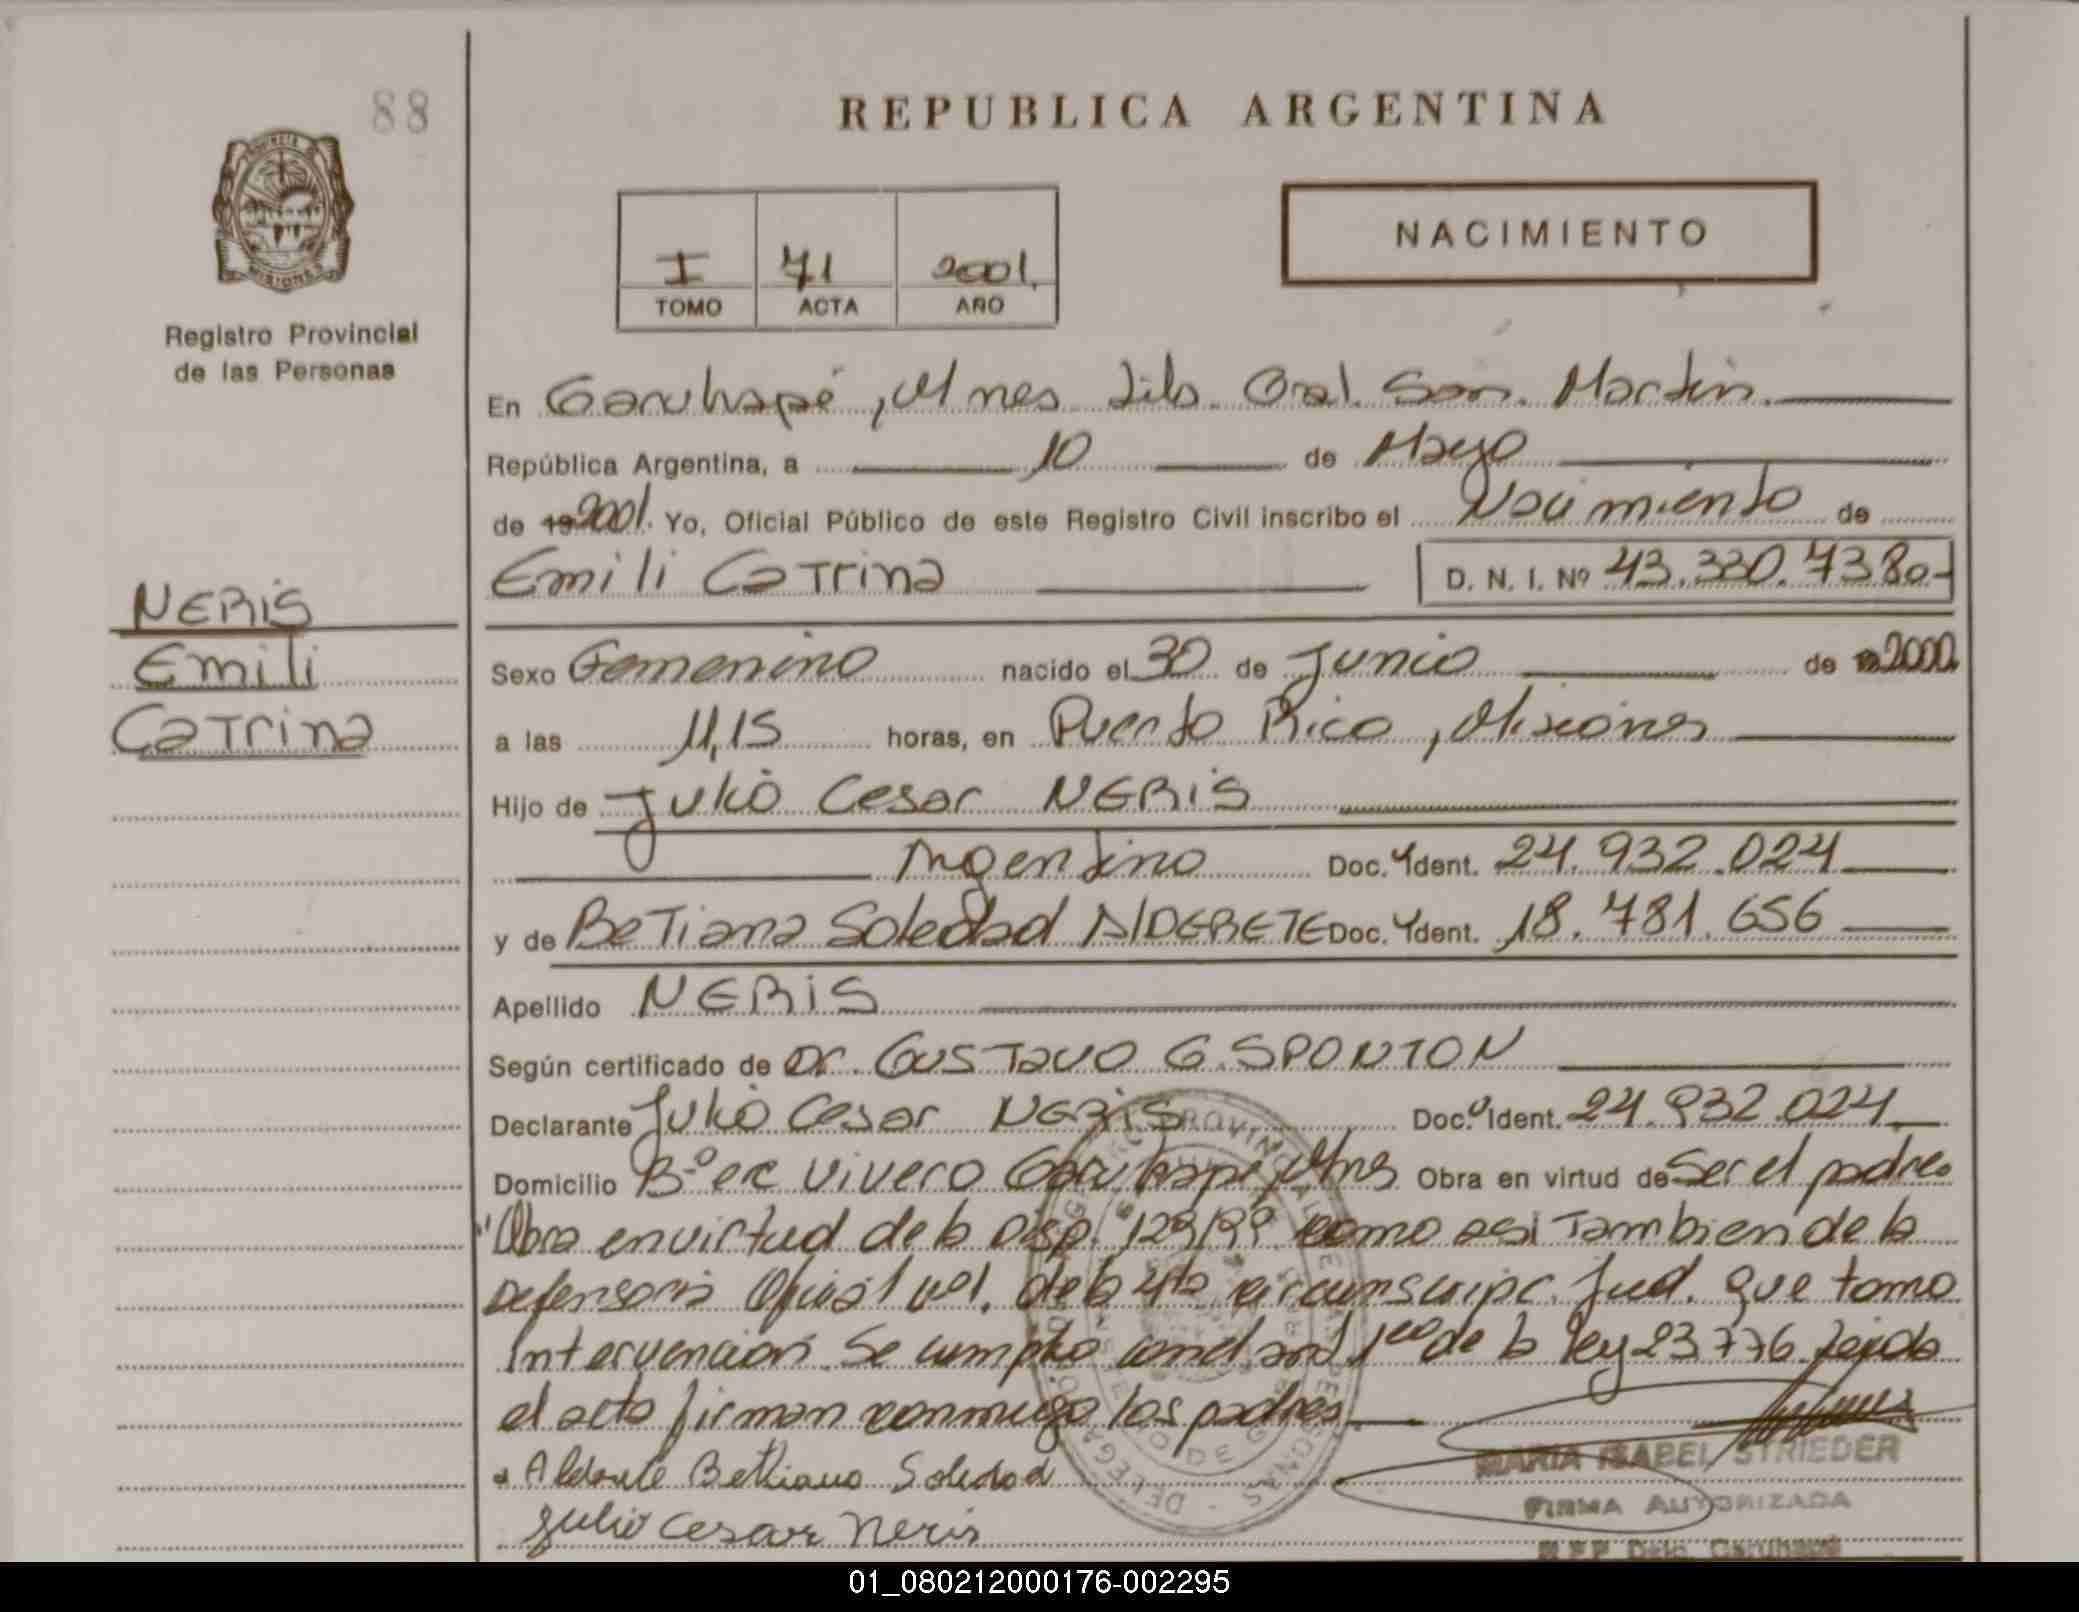 88
REPUBLICA ARGENTINA
PROVINCIA DE
MISIONES
NACIMIENTO
I 71 2001.
TOMO ACTA AÑO
Registro Provincial
de las Personas
En Garuhapé, Mnes Lib. Gral. San. Martin.
República Argentina, a 10 de Mayo
de 19 2001. Yo, Oficial Público de este Registro Civil inscribo el Nacimiento de
Emili Catrina D. N. I. Nº 43.330.738.-
NERIS
Emili
Catrina
Sexo Femenino nacido el 30 de Junio de 2000.
a las 11,15 horas, en Puerto Rico, Misiones
Hijo de Julio Cesar NERIS
Argentino Doc. Ident. 24.932.024
y de BeTiana Soledad AlDERETE Doc. Ident. 18.781.656
Apellido NERIS
Según certificado de Dr. GUSTAVO G. SPONTON
Declarante Julio Cesar NERIS Doc. Ident. 24.932.024
Domicilio Bº ex Vivero Garuhape Mnes Obra en virtud de Ser el padre.
"Obra en virtud de la Disp. 129/99 como asi Tambien de la
Defensoria Oficial de la 4ta circunscripc. Jud. que tomo
Intervencion. Se cumplio con el art 1ro de la ley 23776. Leida
el acta firman conmigo los padres.
Aldrete Bethiana Soledad
Julio Cesar Neris
MARIA ISABEL STRIEDER
FIRMA AUTORIZADA
R.P.P. Dele. Garuhapé
01_080212000176-002295